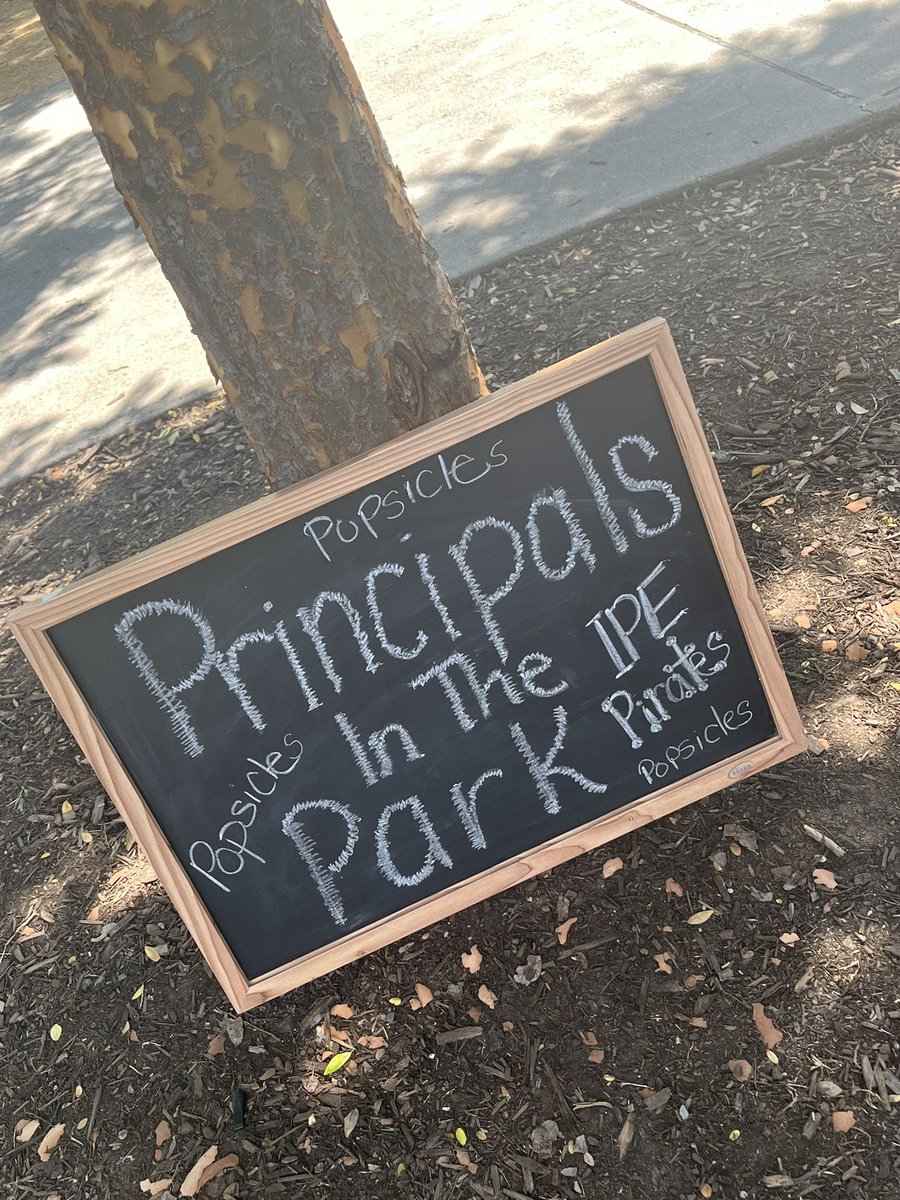 Popsicles
Principals
In The
Park
IPE
Pirates
Popsicles
Popsicles